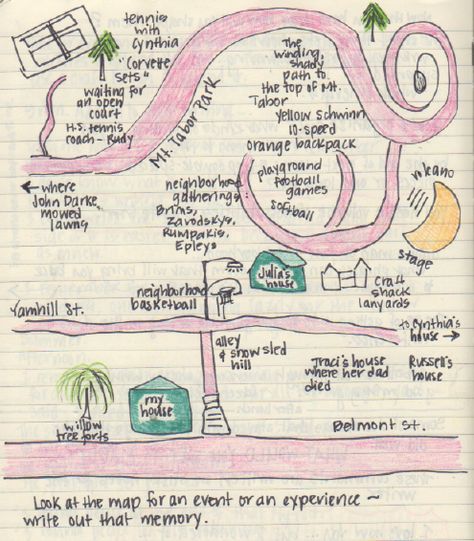 tennis
with
Cynthia
"Corvette
sets"
waiting for
an open
court
H.S. tennis
coach - Rudy
Mt. Tabor Park
The
winding,
shady
path to
the top of Mt.
Tabor
yellow schwinn
10-speed
orange backpack
playground
football
games
softball
volcano
stage
← where
John Darke
mowed
lawns
neighborhood
gatherings:
Brims,
Zavodskys,
Rumpakis,
Epleys
Julia's
house
craft
shack
lanyards
neighborhood
basketball
Yamhill St.
to Cynthia's
house →
alley
& snow sled
hill
Traci's house
where her dad
died
Russell's
house
willow
tree forts
my
house
Belmont St.
Look at the map for an event or an experience ~
write out that memory.